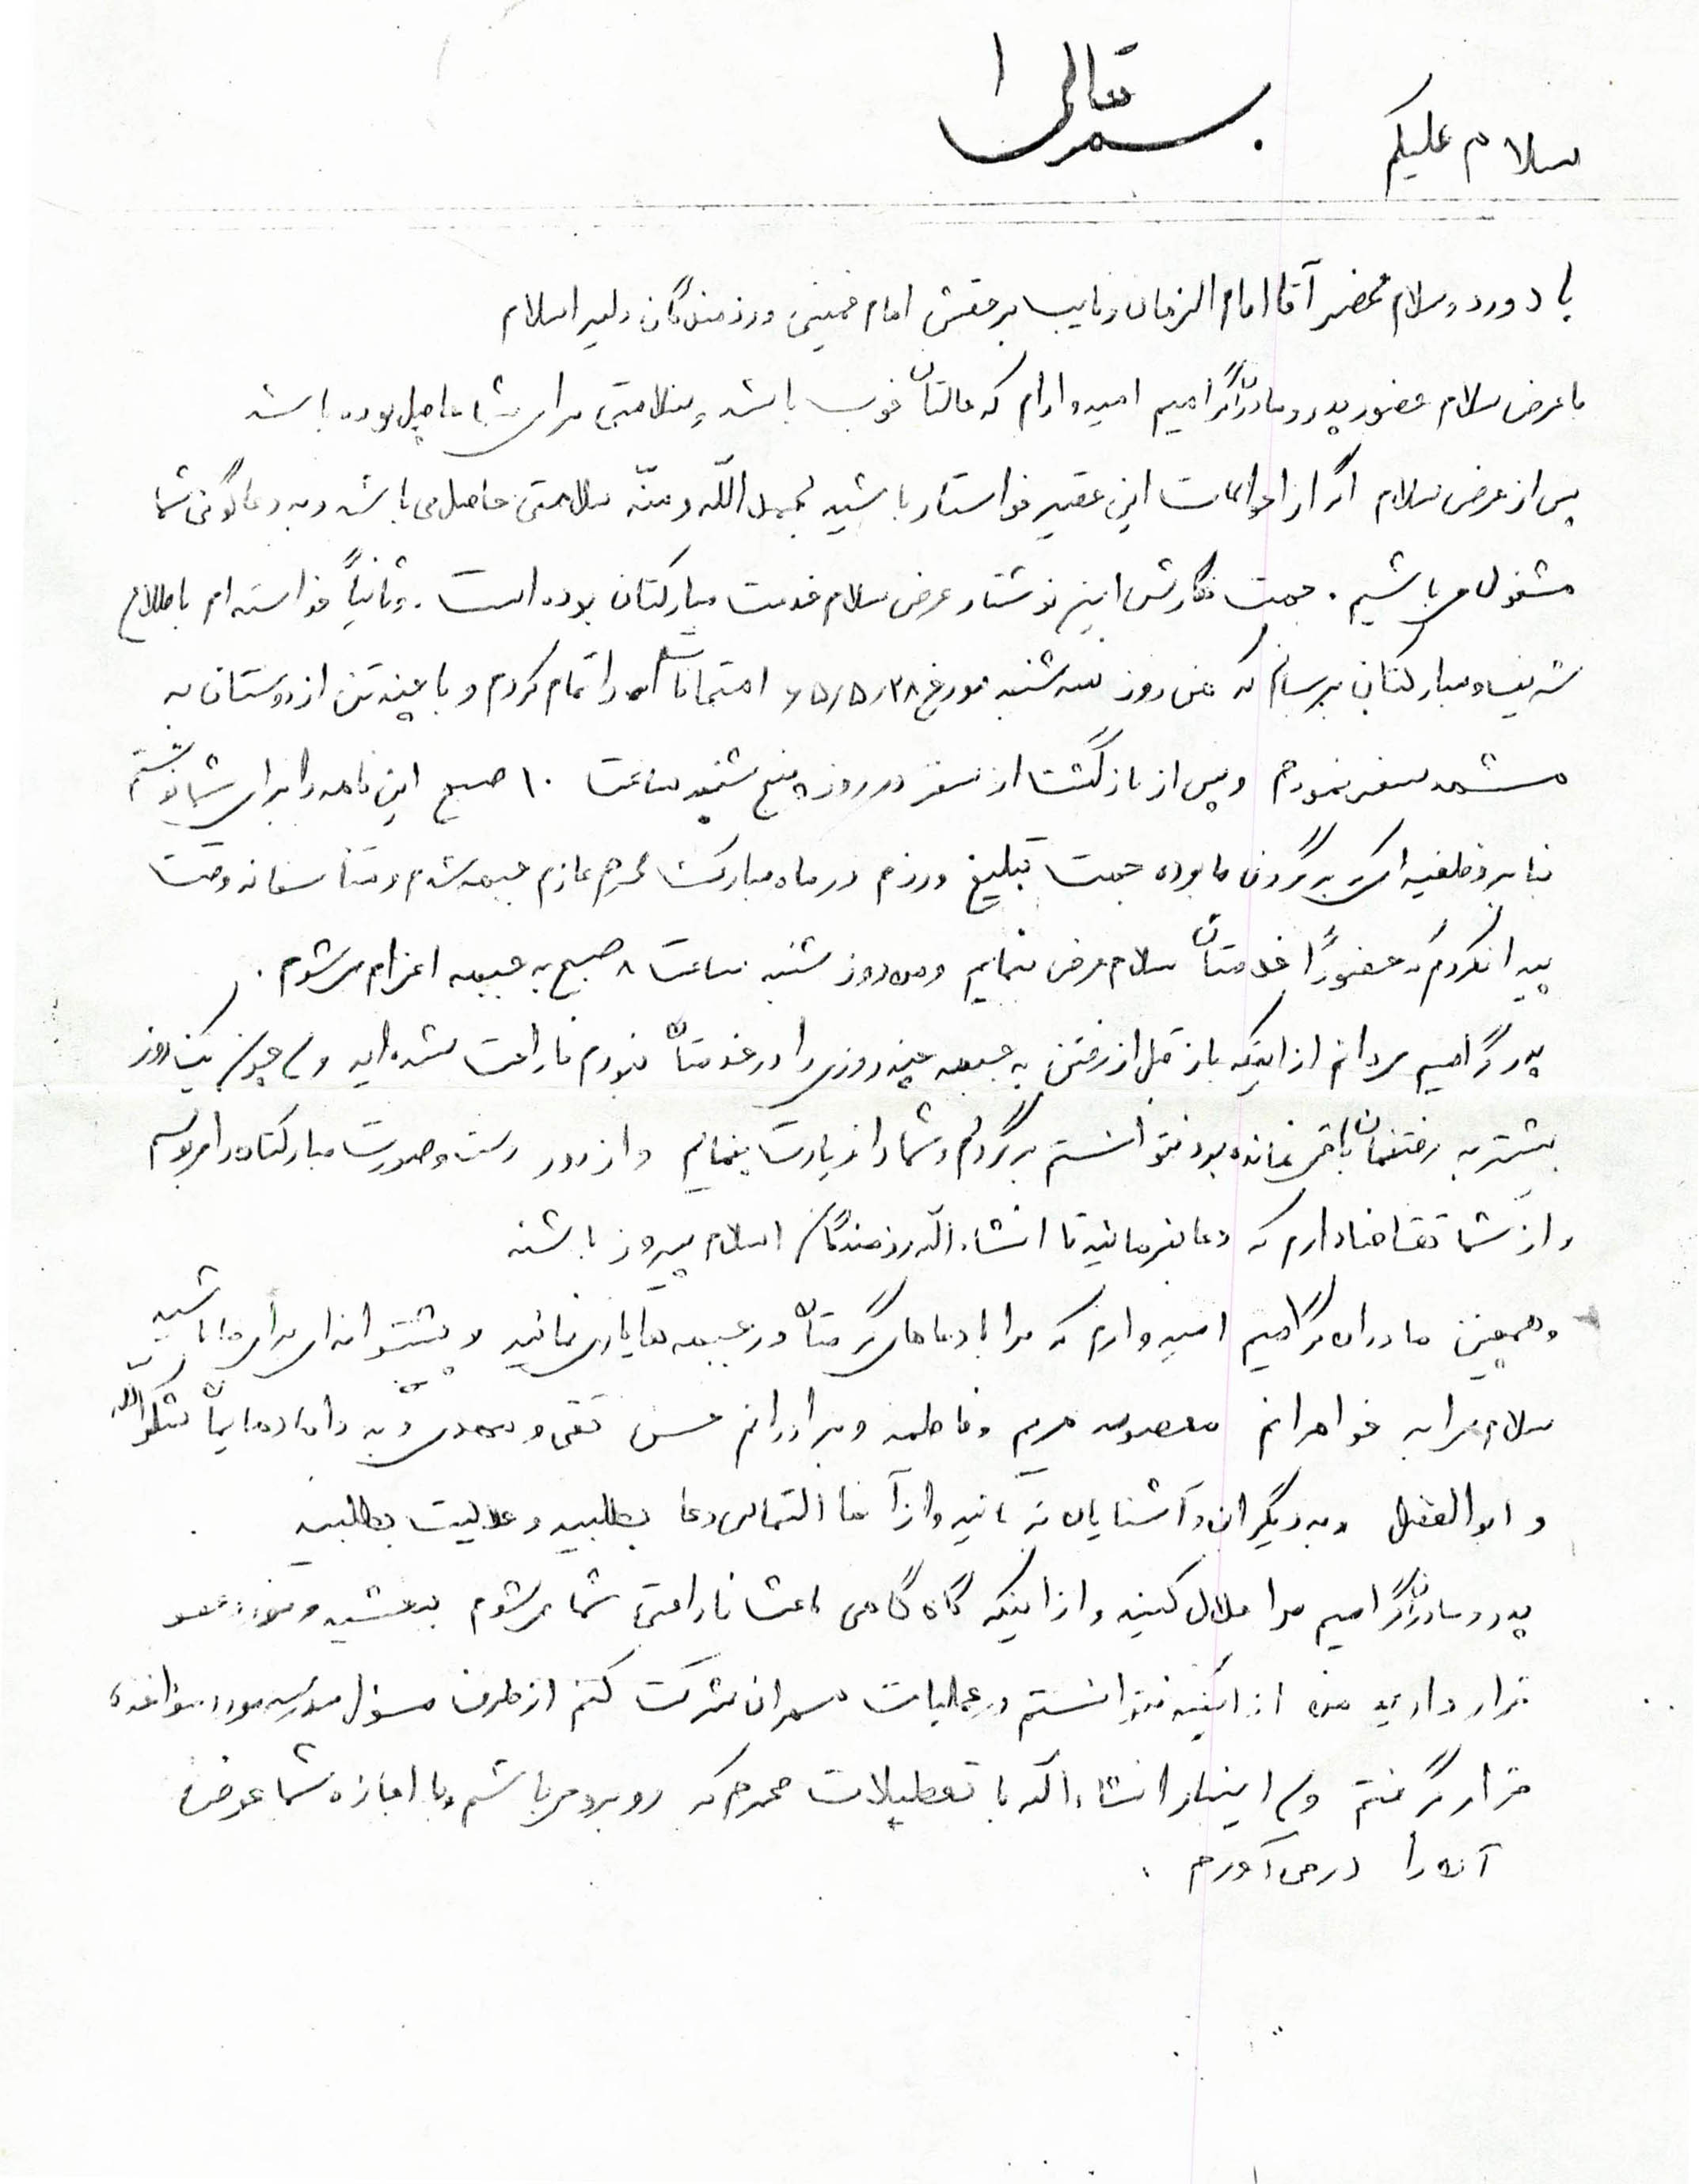 بسمه تعالی
سلام علیکم
با درود و سلام محضر آقا امام الزمان و نایب برحقش امام خمینی و رزمندگان دلیر اسلام
با عرض سلام حضور پدر و مادران گرامیم امیدوارم که حالتان خوب باشد و سلامتی برای شما حاصل بوده باشد
پس از عرض سلام اگر از احوالات این حقیر خواستار باشید بحمدالله و منّه سلامتی حاصل می باشد و به دعاگوئی شما
مشغول می باشیم . جهت نگارش این نوشتار عرض سلام خدمت مبارکتان بوده است . و ثانیاً خواسته ام باطلاع
شریف و مبارکتان برسانم که من روز سه شنبه مورخ ۶۵/۵/۲۸ امتحانات را تمام کردم و با چند تن از دوستان به
مشهد سفر نمودم و پس از بازگشت از سفر در روز پنج شنبه ساعت ۱۰ صبح این نامه را برای شما نوشتم
بنا بر وظیفه ای که بر گردن ما بوده جهت تبلیغ و رزم در ماه مبارک محرم عازم جبهه شدم و متأسفانه وقت
پیدا نکردم که حضوراً خدمتان سلام عرض نمایم و روز شنبه ساعت ۸ صبح به جبهه اعزام می شوم .
پدر گرامیم می دانم از اینکه باز قبل از رفتن به جبهه چند روزی را در خدمتان نبودم ناراحت شده اید ولی چون یک روز
بیشتر به رفتنمان باقی نمانده بود نتوانستم برگردم و شما را زیارت بنمایم و از دور دست و صورت مبارکتان را می بوسم
و از شما تقاضا دارم که دعا بفرمائید تا انشاءالله رزمندگان اسلام پیروز باشند
و همچنین مادران گرامیم امیدوارم که مرا با دعاهای گرمتان در جبهه ها یاری نمائید و پشتوانه ای برای ما باشید
سلام مرا به خواهرانم معصومه مریم و فاطمه و برادرانم حسن تقی و مهدی و به دامادهایمان شکرالله
و ابوالفضل و به دیگران و آشنایان برسانید و از آنها التماس دعا بطلبید و حلالیت بطلبید
پدر و مادران گرامیم مرا حلال کنید و از اینکه گاه گاهی باعث ناراحتی شما می شوم ببخشید و مورد عفو
قرار دارید من از اینکه نتوانستم در عملیات مهران شرکت کنم از طرف مسئول مدرسه مورد مؤاخذه
قرار گرفتم ولی اینبار انشاءالله با تعطیلات محرم که روبرو می باشم با اجازه شما عوض
آن را در می آورم .